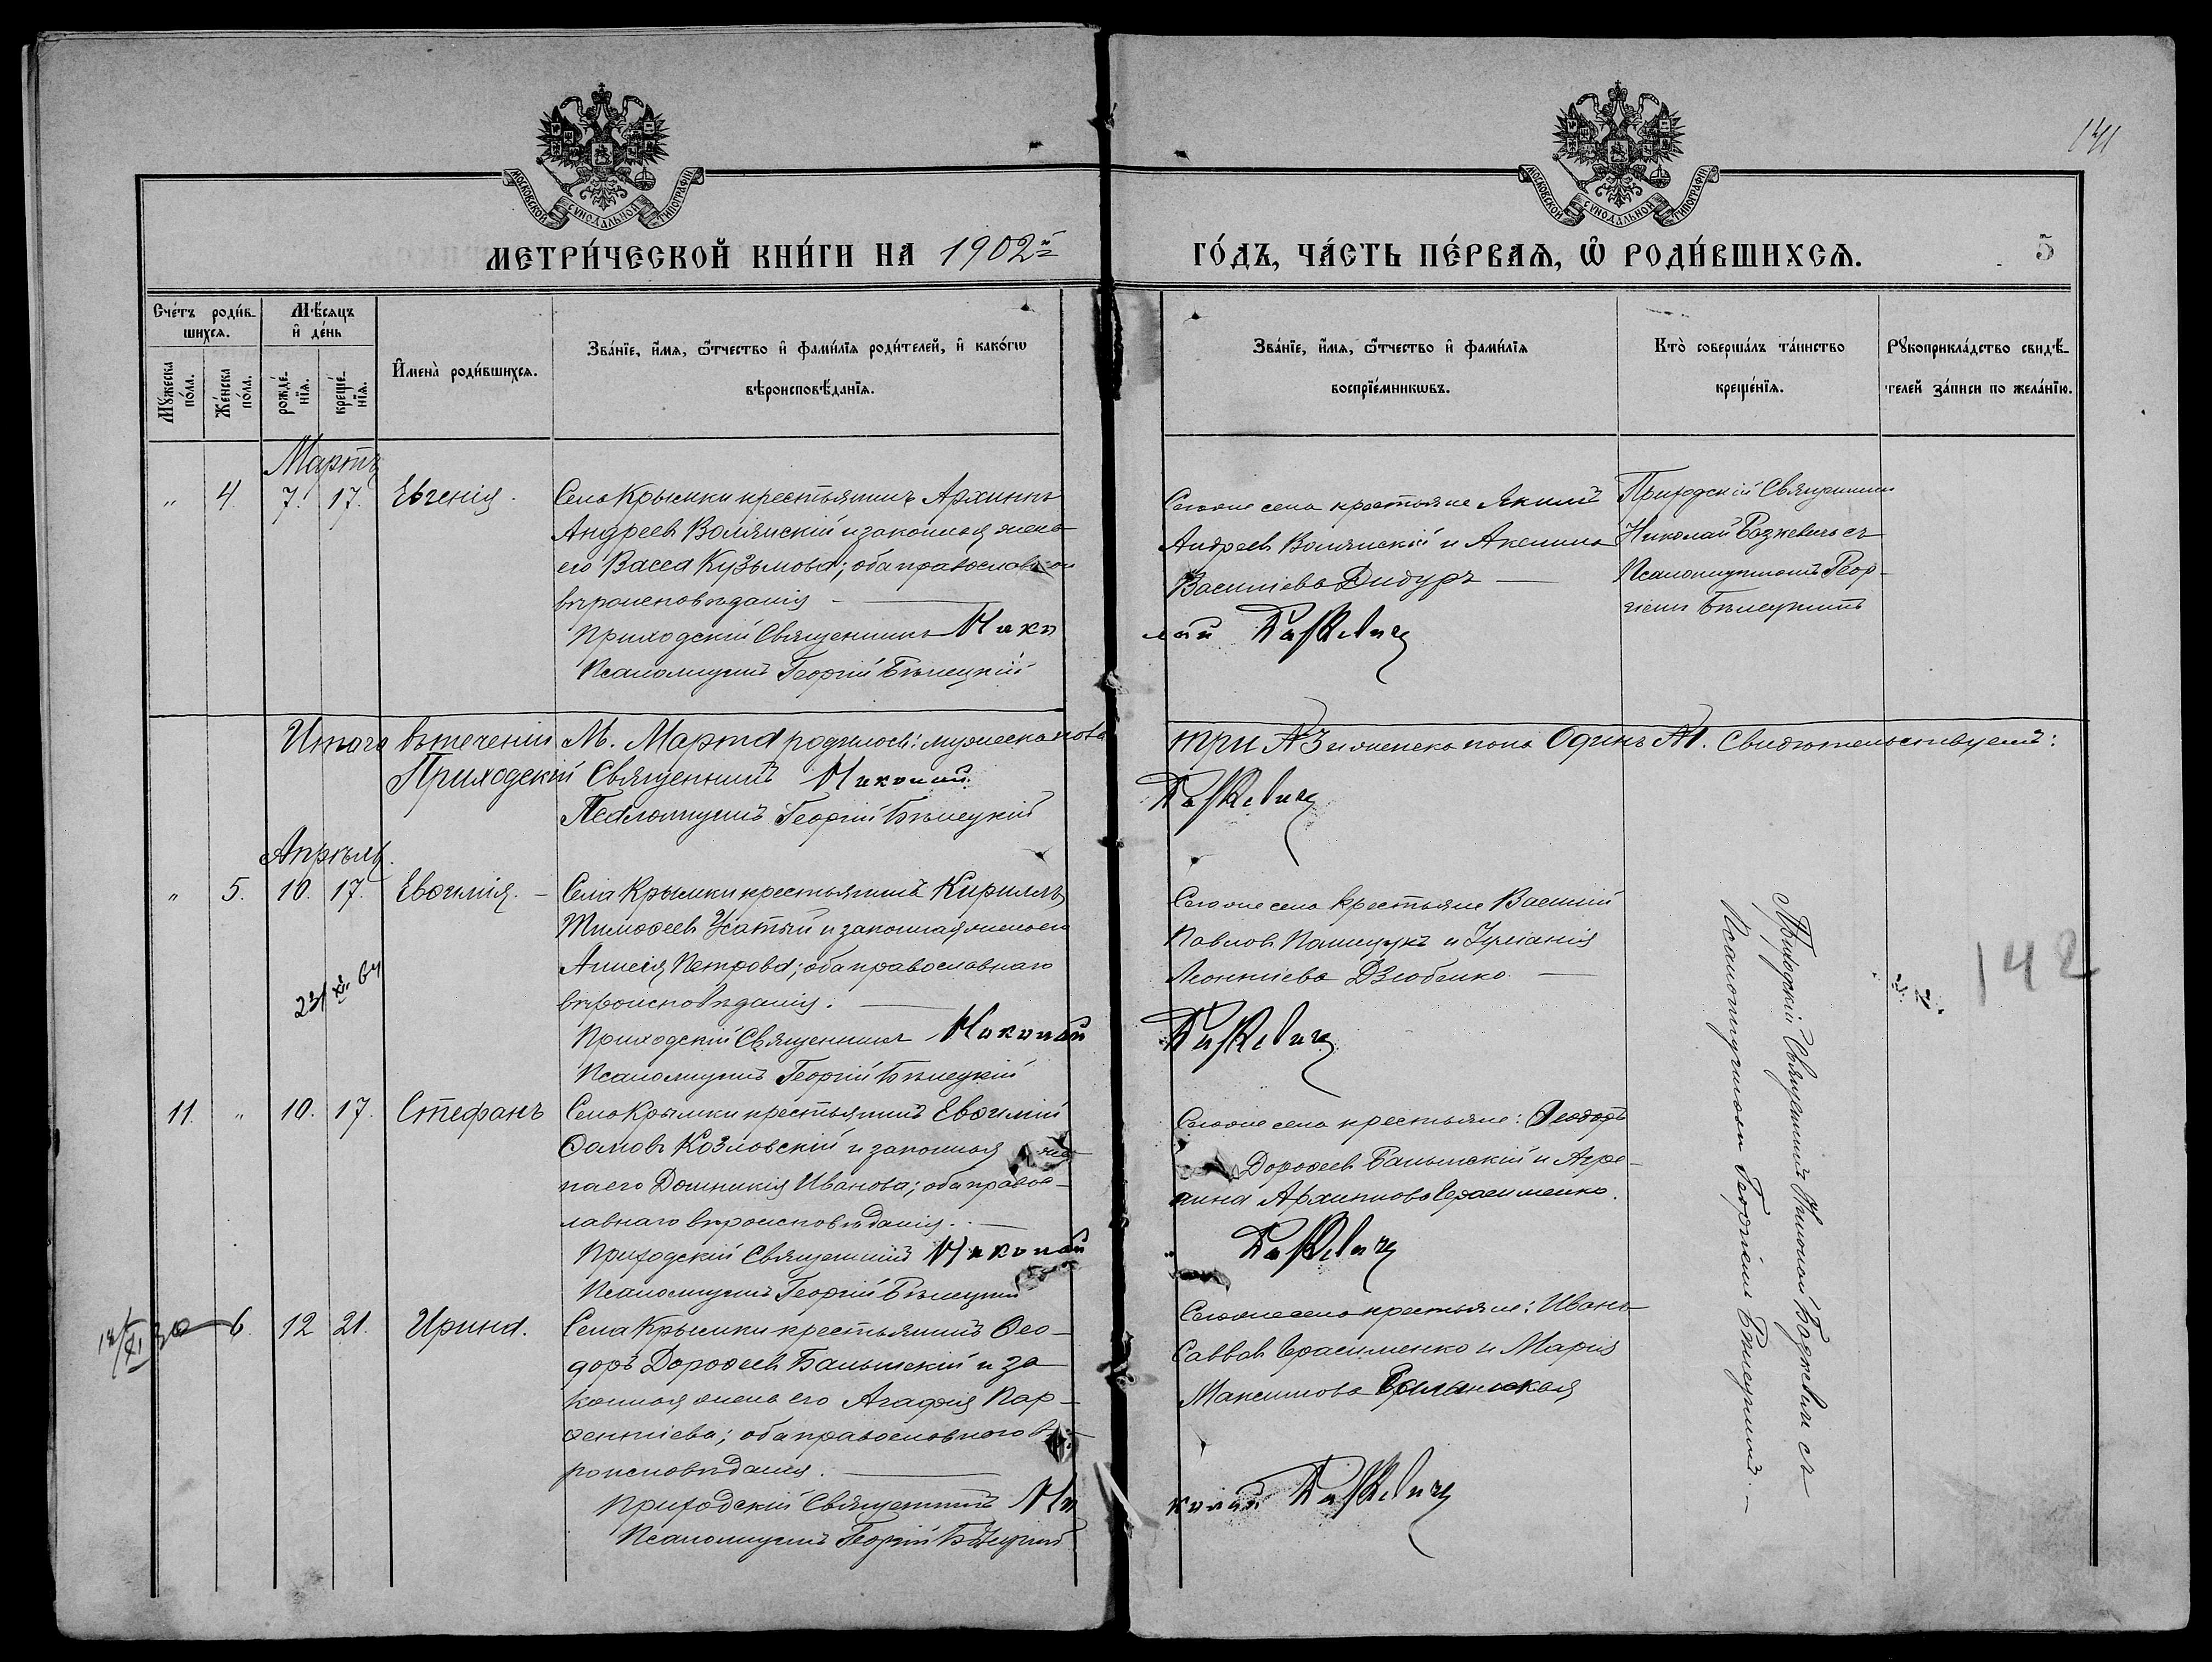 141
МОСКОВСКОЙ СѴНОДАЛЬНОЙ ТИПОГРАФІИ
МОСКОВСКОЙ СѴНОДАЛЬНОЙ ТИПОГРАФІИ
МЕТРИ́ЧЕСКОЙ КНИ́ГИ НА 1902й
ГО́ДЪ, ЧА́СТЬ ПЕ́РВАѦ, Ѽ РОДИ́ВШИХСѦ.
5
Сче́тъ роди́в-
шихсѧ.
Мѣ́сѧцъ
и҆ де́нь
Мꙋжеска по́ла.
Же́нска по́ла.
рожде́-
нїѧ.
креще́-
нїѧ.
И҆мена̀ роди́вшихсѧ.
Зва́нїе, и҆́мѧ, ѻ҆́тчество и҆ фами́лїѧ роди́телей, и҆ како́гѡ
вѣроисповѣ́данїѧ.
Зва́нїе, и҆́мѧ, ѻ҆́тчество и҆ фами́лїѧ
воспрїе́мникѡвъ.
Кто̀ соверша́лъ та́инство
креще́нїѧ.
Рꙋкоприкла́дство свидѣ́-
телей за́писи по жела́нїю.
Мартъ
" 4. 7. 17. Евгенія.
Села Крымки крестьянинъ Архипъ
Андреевъ Волянскій и законная жена
его Васса Кузьмова; оба православнаго
вѣроисповѣданія
Приходскій Священникъ Нико
Псаломщикъ Георгій Бѣлецкій
Тогоже села крестьяне Якимъ
Андреевъ Волянскій и Аксинія
Василіева Дидуръ
лай Базкевичъ
Приходскій Священникъ
Николай Базкевичъ съ
Псаломщикомъ Геор-
гіемъ Бѣлецкимъ
Итого втеченіи М. Марта родилось: мужеска пола
три №3 и женска пола Одинъ №1. Свидѣтельствуемъ:
Приходскій Священникъ Николай
Базкевичъ
Псаломщикъ Георгій Бѣлецкій
Апрѣль.
" 5. 10. 17. Евфимія.
Села Крымки крестьянинъ Кириллъ
Тимофеевъ Усатый и законная жена его
Анисія Петрова; оба православнаго
вѣроисповѣданія.
Приходскій Священникъ Николай
Псаломщикъ Георгій Бѣлецкій
23/XII 64
Тогоже села крестьяне Василій
Павловъ Полищукъ и Іуліанія
Леонтіева Дзюбенко.
Базкевичъ
Приходскій Священникъ Николай Базкевичъ съ
Псаломщикомъ Георгіемъ Бѣлецкимъ.
142
11. " 10. 17. Стефанъ
Села Крымки крестьянинъ Евфимій
Ѳомовъ Козловскій и законная же-
на его Домникія Иванова; оба правос-
лавнаго вѣроисповѣданія.
Приходскій Священникъ Николай
Псаломщикъ Георгій Бѣлецкій
Тогоже села крестьяне: Ѳеодоръ
Дорофеевъ Балынскій и Агре-
пина Архипова Герасименко.
Базкевичъ
6. 12 21. Ирина.
Села Крымки крестьянинъ Ѳео-
доръ Дорофеевъ Балынскій и за
конная жена его Агафія Пар-
фентіева; оба православного вѣ-
роисповѣданія.
Приходскій Священникъ Ни
Псаломщикъ Георгій Бѣлецкій
Тогоже села крестьяне: Иванъ
Саввовъ Герасименко и Марія
Максимова
колай Базкевичъ